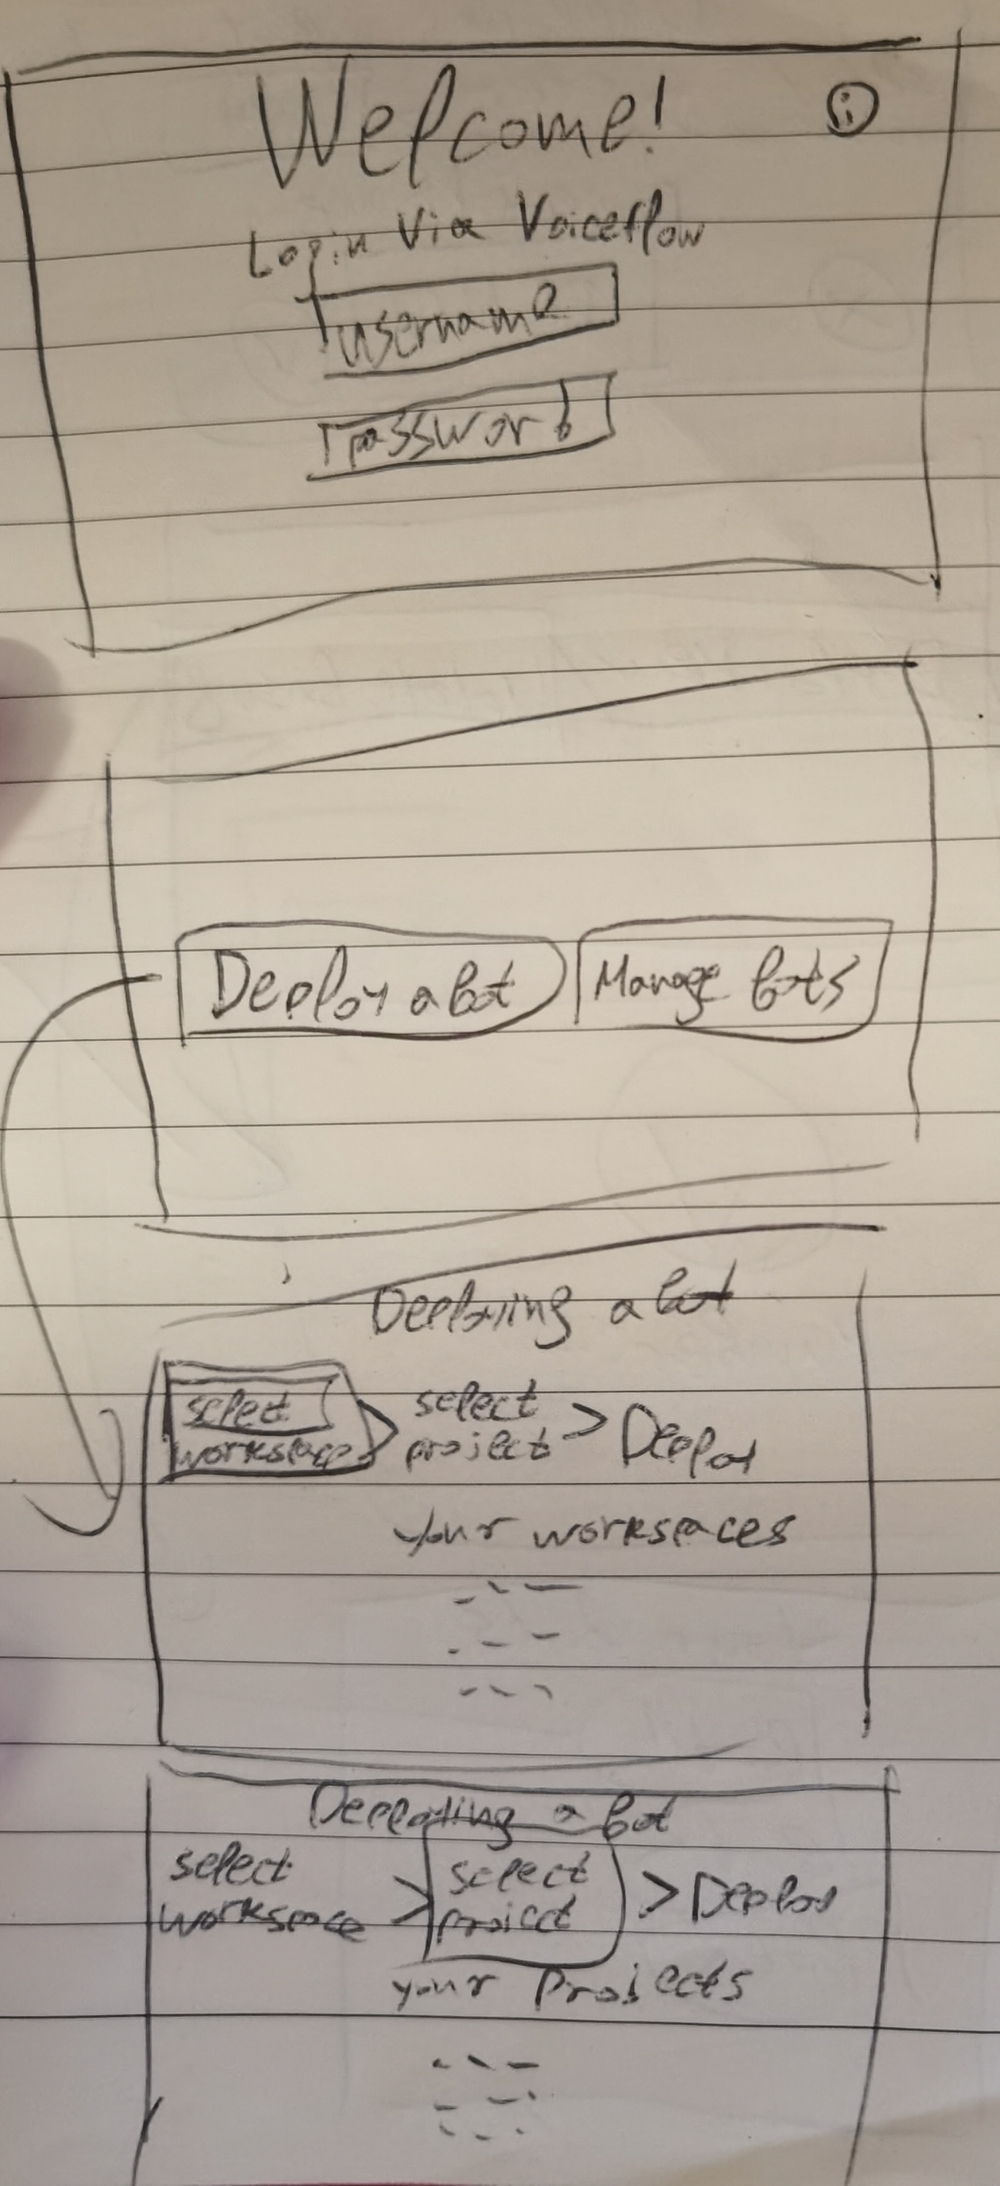 Welcome!
i
Login Via Voiceflow
username
password
Deploy a bot
Manage bots
Deploying a bot
select workspace > select project > Deploy
your workspaces
Deploying a bot
select workspace > select project > Deploy
your Projects